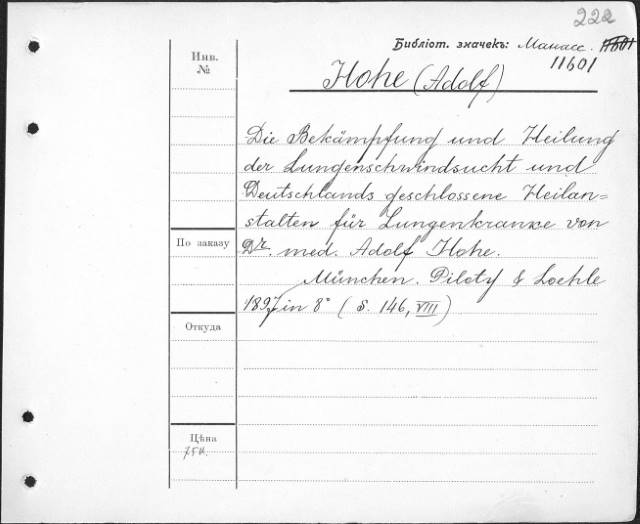 222
Библіот. значекъ: Манасс. 11601
11601
Инв.
№
Hohe (Adolf)
Die Bekämpfung und Heilung
der Lungenschwindsucht und
Deutschlands geschlossene Heilan=
stalten für Lungenkranke von
Dr. med. Adolf Hohe.
München. Piloty & Loehle
1897 in 8° (S. 146, VIII)
По заказу
Откуда
Цѣна
75к.